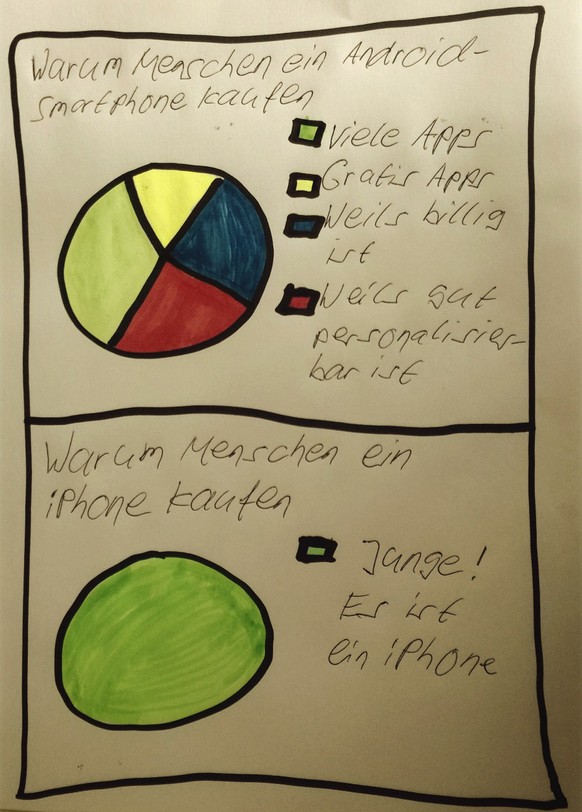 Warum Menschen ein Android-
smartphone kaufen
Viele Apps
Gratis Apps
Weils billig
ist
Weils gut
personalisier-
bar ist
Warum Menschen ein
iPhone kaufen
Junge!
Es ist
ein iPhone